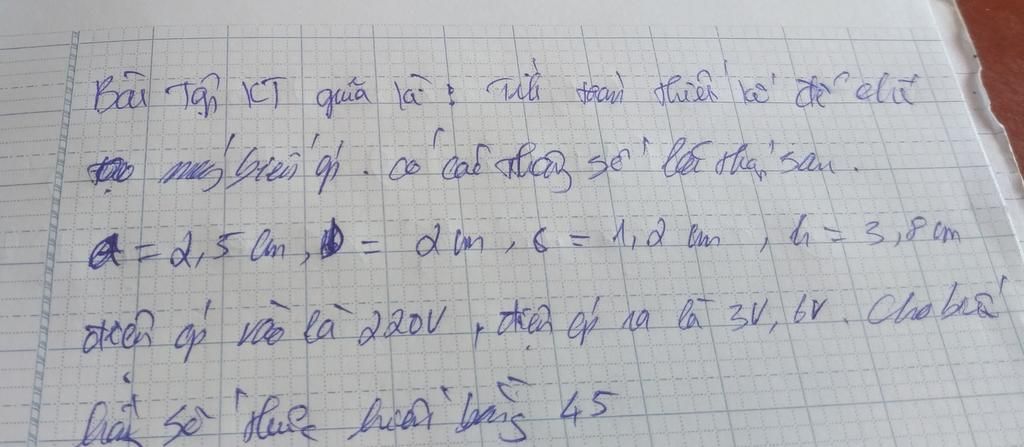 Bài tập KT giữa kì : Tính toán thiết kế để chế
tạo máy biến áp. có các thông số lõi thép sau.
a = 2,5 cm, b = 2 cm, c = 1,2 cm, h = 3,8 cm
điện áp vào là 220V, điện áp ra là 3V, 6V. Cho biết
hằng số thực nghiệm bằng 45